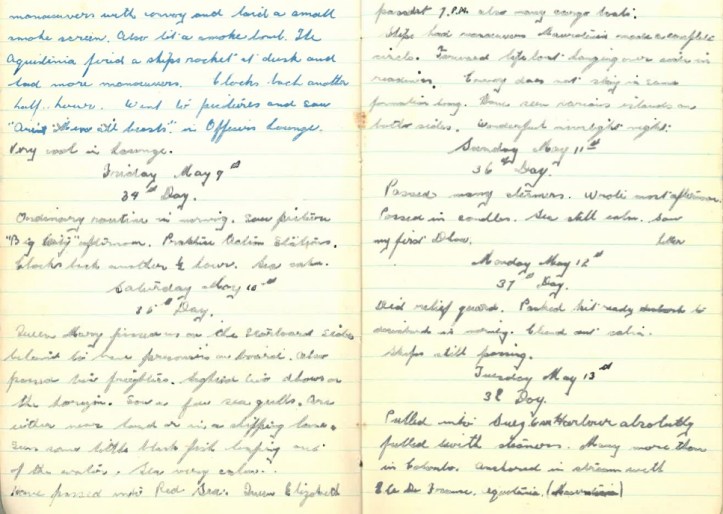 manoeuvers with convoy and laid a small
smoke screen. Also lit a smoke bomb. The
Aquitinia fired a ships rocket at dusk and
had more manoeuvers. Clocks back another
half hour. Went to pictures and saw
in Officers Lounge.
Very cool in Lounge.
Friday May 9th
34th Day.
Ordinary routine in morning. Saw picture
"Big City" afternoon. Practice Action Stations.
Clocks back another ½ hour. Sea calm.
Saturday May 10th
35th Day.
Queen Mary passed us on the Starboard Side
believed to have prisoners on board. Also
passed two freighters. Sighted two dhows on
the horizon. Saw a few sea gulls. Are
either near land or in a shipping lane.
Seen some little black fish leaping out
of the water. Sea very calm.
Have passed into Red Sea. Queen Elizabeth
passed 7.P.M. also many cargo boats.
Ships had manoeuvers Mauretinia made a complete
circle. Forward lifeboat hanging over side in
readiness. Convoy does not stay in same
formation long. Have seen various islands on
both sides. Wonderful moonlight night.
Sunday May 11th
36th Day.
Passed many steamers. Wrote most afternoon.
Passed in candles. Sea still calm. Saw
my first Dhow. letter
Monday May 12th
37th Day.
Did relief guard. Packed kit ready to
in morning. Cleaned out cabin.
Ships still passing.
Tuesday May 13th
38 Day.
Pulled into Suez harbour absolutly
filled with steamers. Many more than
in Colombo. Anchored in stream with
Ile De France, (Mauretania)